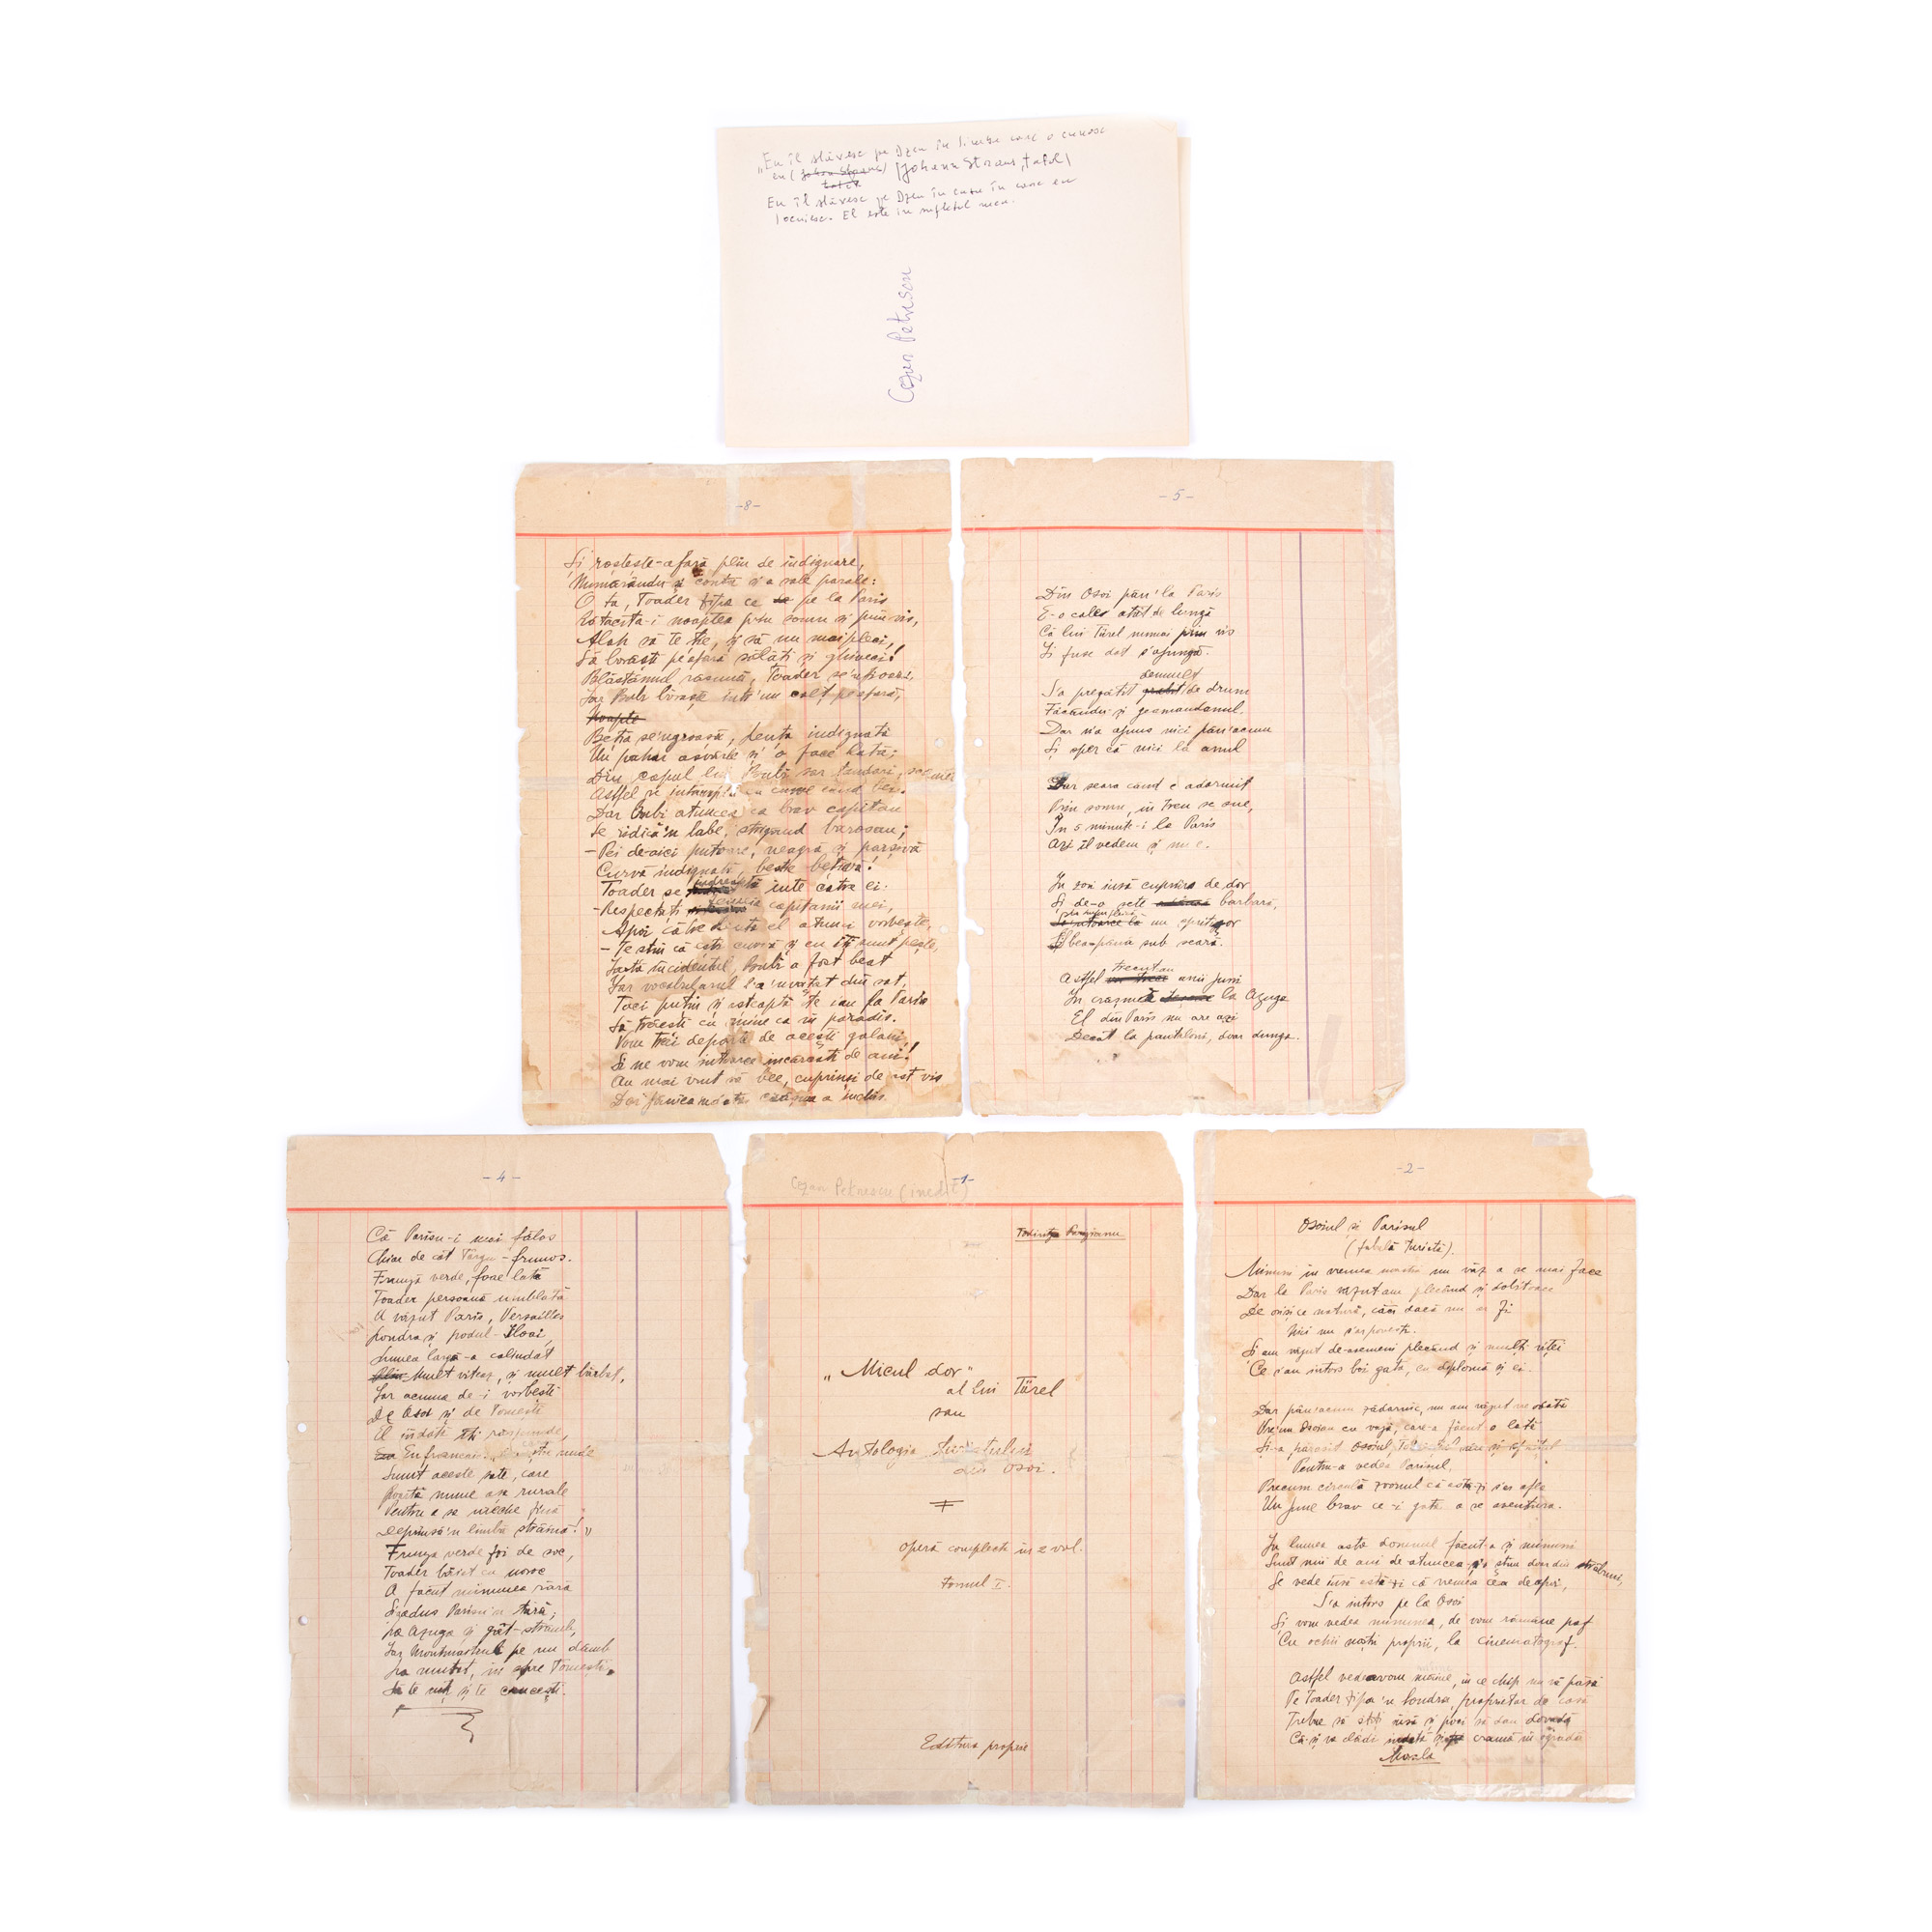 „Eu îl slăvesc pe Dzeu în limba care o cunosc
eu (Johann Straus, tatăl)
Eu îl slăvesc pe Dzeu în care în care eu
locuiesc. El este in sufletul meu.
Cezar Petrescu
-8-
Și rostește-afară plin de indignare,
Numărându-și contra și a sale parale:
O fa, Toader Țîpa ce pe la Paris
Rătăcita-i noaptea prin somn și prin vis,
Alah să te ție, și să nu mai pleci,
Să borăști pe afară salăți și ghiveci!
Blăstămul răsună, Toader se
Iar Bubi borăște intr'un colț pe afară,
Noapte
Beția se'ngroașă, fenta indignată
Un pahar asvârle și o face lată;
Din capul lui Bubi sar țandări,
Astfel se intâmplă cu curve când bei.
Dar Bubi atuncea ca brav capitan
Se ridică'n labe, strigând barosan;
- Pei de-aici putoare, neagră și parșivă
Curvă indignată, bestie bețivă!
Toader se indreaptă inte către ei:
- Respectați capitanii mei,
Apoi către fenta el atunci vorbește,
- Te știu că ești curvă și eu îți sunt pește,
Iartă incidentul, Bubi a fost beat
Iar vocabularul l-a'nvățat din sat,
Taci puțin și așteaptă te iau la Paris
Să trăești cu mine ca în paradis.
Vom trăi departe de acești golani,
Și ne vom intoarce incărcați de ani!
Au mai vrut să bee, cuprinși de-ast vis
Dar crâșma a inchis.
-5-
Din Osoi pân'la Paris
E-o cale atât de lungă
Că lui Türel numai prin vis
Ii fuse dat s'ajungă.
demult
S'a pregătit de drum
Făcându-și geamandanul.
Dar n'a ajuns nici pân'acum
Și sper că nici la anul
Dar seara când e adormit
Prin somn, în tren se sue,
În 5 minute-i la Paris
Azi îl vedem și nu e.
In zori insă cuprins de dor
Și de-o sete barbară,
un șprițișor
Și bea până sub seară.
trecut au
Astfel anii juni
In crâșmă la Azuga
El din Paris nu are azi
Decât la pantaloni, doar dunga.
-4-
Că Parisu-i mai fălos
Chiar de cât Târgu-frumos.
Frunză verde, foae lată
Toader persoană umblată
A văzut Paris, Versailles
Londra și podul-Iloai,
Lumea largă-a colindat
Mult viteaz, și mult bărbat,
Iar acuma de-i vorbești
De Osoi și de Tomești
El indată iți răspunde,
Sunt aceste sate, care
Poartă nume așa rurale
Pentru a sa ureche fină
Deprinsă'n limbă străină!"
Frunză verde foi de soc,
Toader băiat cu noroc
A făcut minunea rară
Și-adus Parisu'n țară;
La Azuga și Gât-strâmb,
Iar Montmartrul pe un dâmb
L-a mutat, in spre Tomești.
Să te uiți și te crucești.
-1-
Cezar Petrescu (inedit)
„Micul dor"
al lui Türel
sau
Antologia turistului
din Osoi.
operă complectă în 2 vol.
Tomul I.
Editura proprie
-2-
Osoiul si Parisul
(fabulă turistă).
Minuni în vremea noastră nu văz a se mai face
Dar la Paris văzut-am plecând și dobitoace
De orișice natură, căci dacă nu ar fi
Nici nu s'ar povesti.
Și am văzut de-asemeni plecând și mulți viței
Ce s'au intors boi gata, cu diplomă și ei.
Dar pân'acum zădarnic, nu am văzut
Vre'un Osoian cu vază, care-a făcut o lată
Și-a părăsit Osoiul,
Pentru-a vedea Parisul.
Precum circulă zvonul că astă-zi s'ar afla
Un june brav ce-i gata a se aventura.
In lumea asta domnul făcut-a și minuni
Sunt mii de ani de-atuncea și-o știm doar din străbuni,
Se vede însă astă-zi că vremea cea de-apoi,
S'a intors pe la Osoi
Și vom vedea minunea, de vom rămâne paf
Cu ochii noștri proprii, la cinematograf.
Astfel vedea-vom mâine, în ce chip nu vă pasă
Pe Toader Țîpa'n Londra, proprietar de casă
Trebue să știți insă și pot să dau dovadă
Că-și va clădi indată cramă în ogradă
Mazla